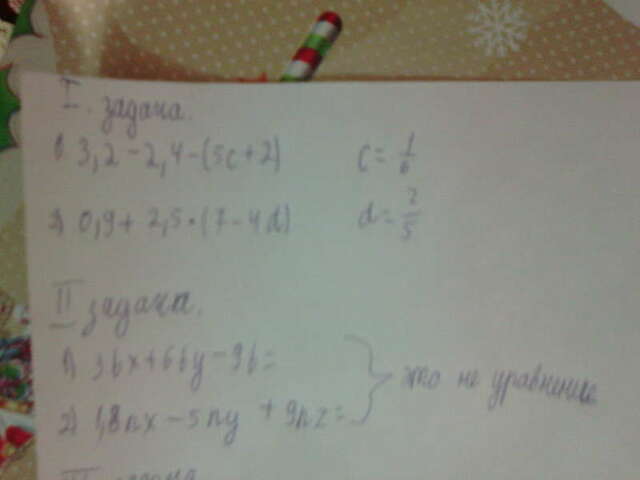 I. задача.
1) 3,2-2,4-(5c+2) c=1/6
2) 0,9+2,5·(7-4d) d=2/5
II задача.
1) 3bx+6by-9b=
2) 1,8nx-5ny+9nz= } это не уравнение
III задача